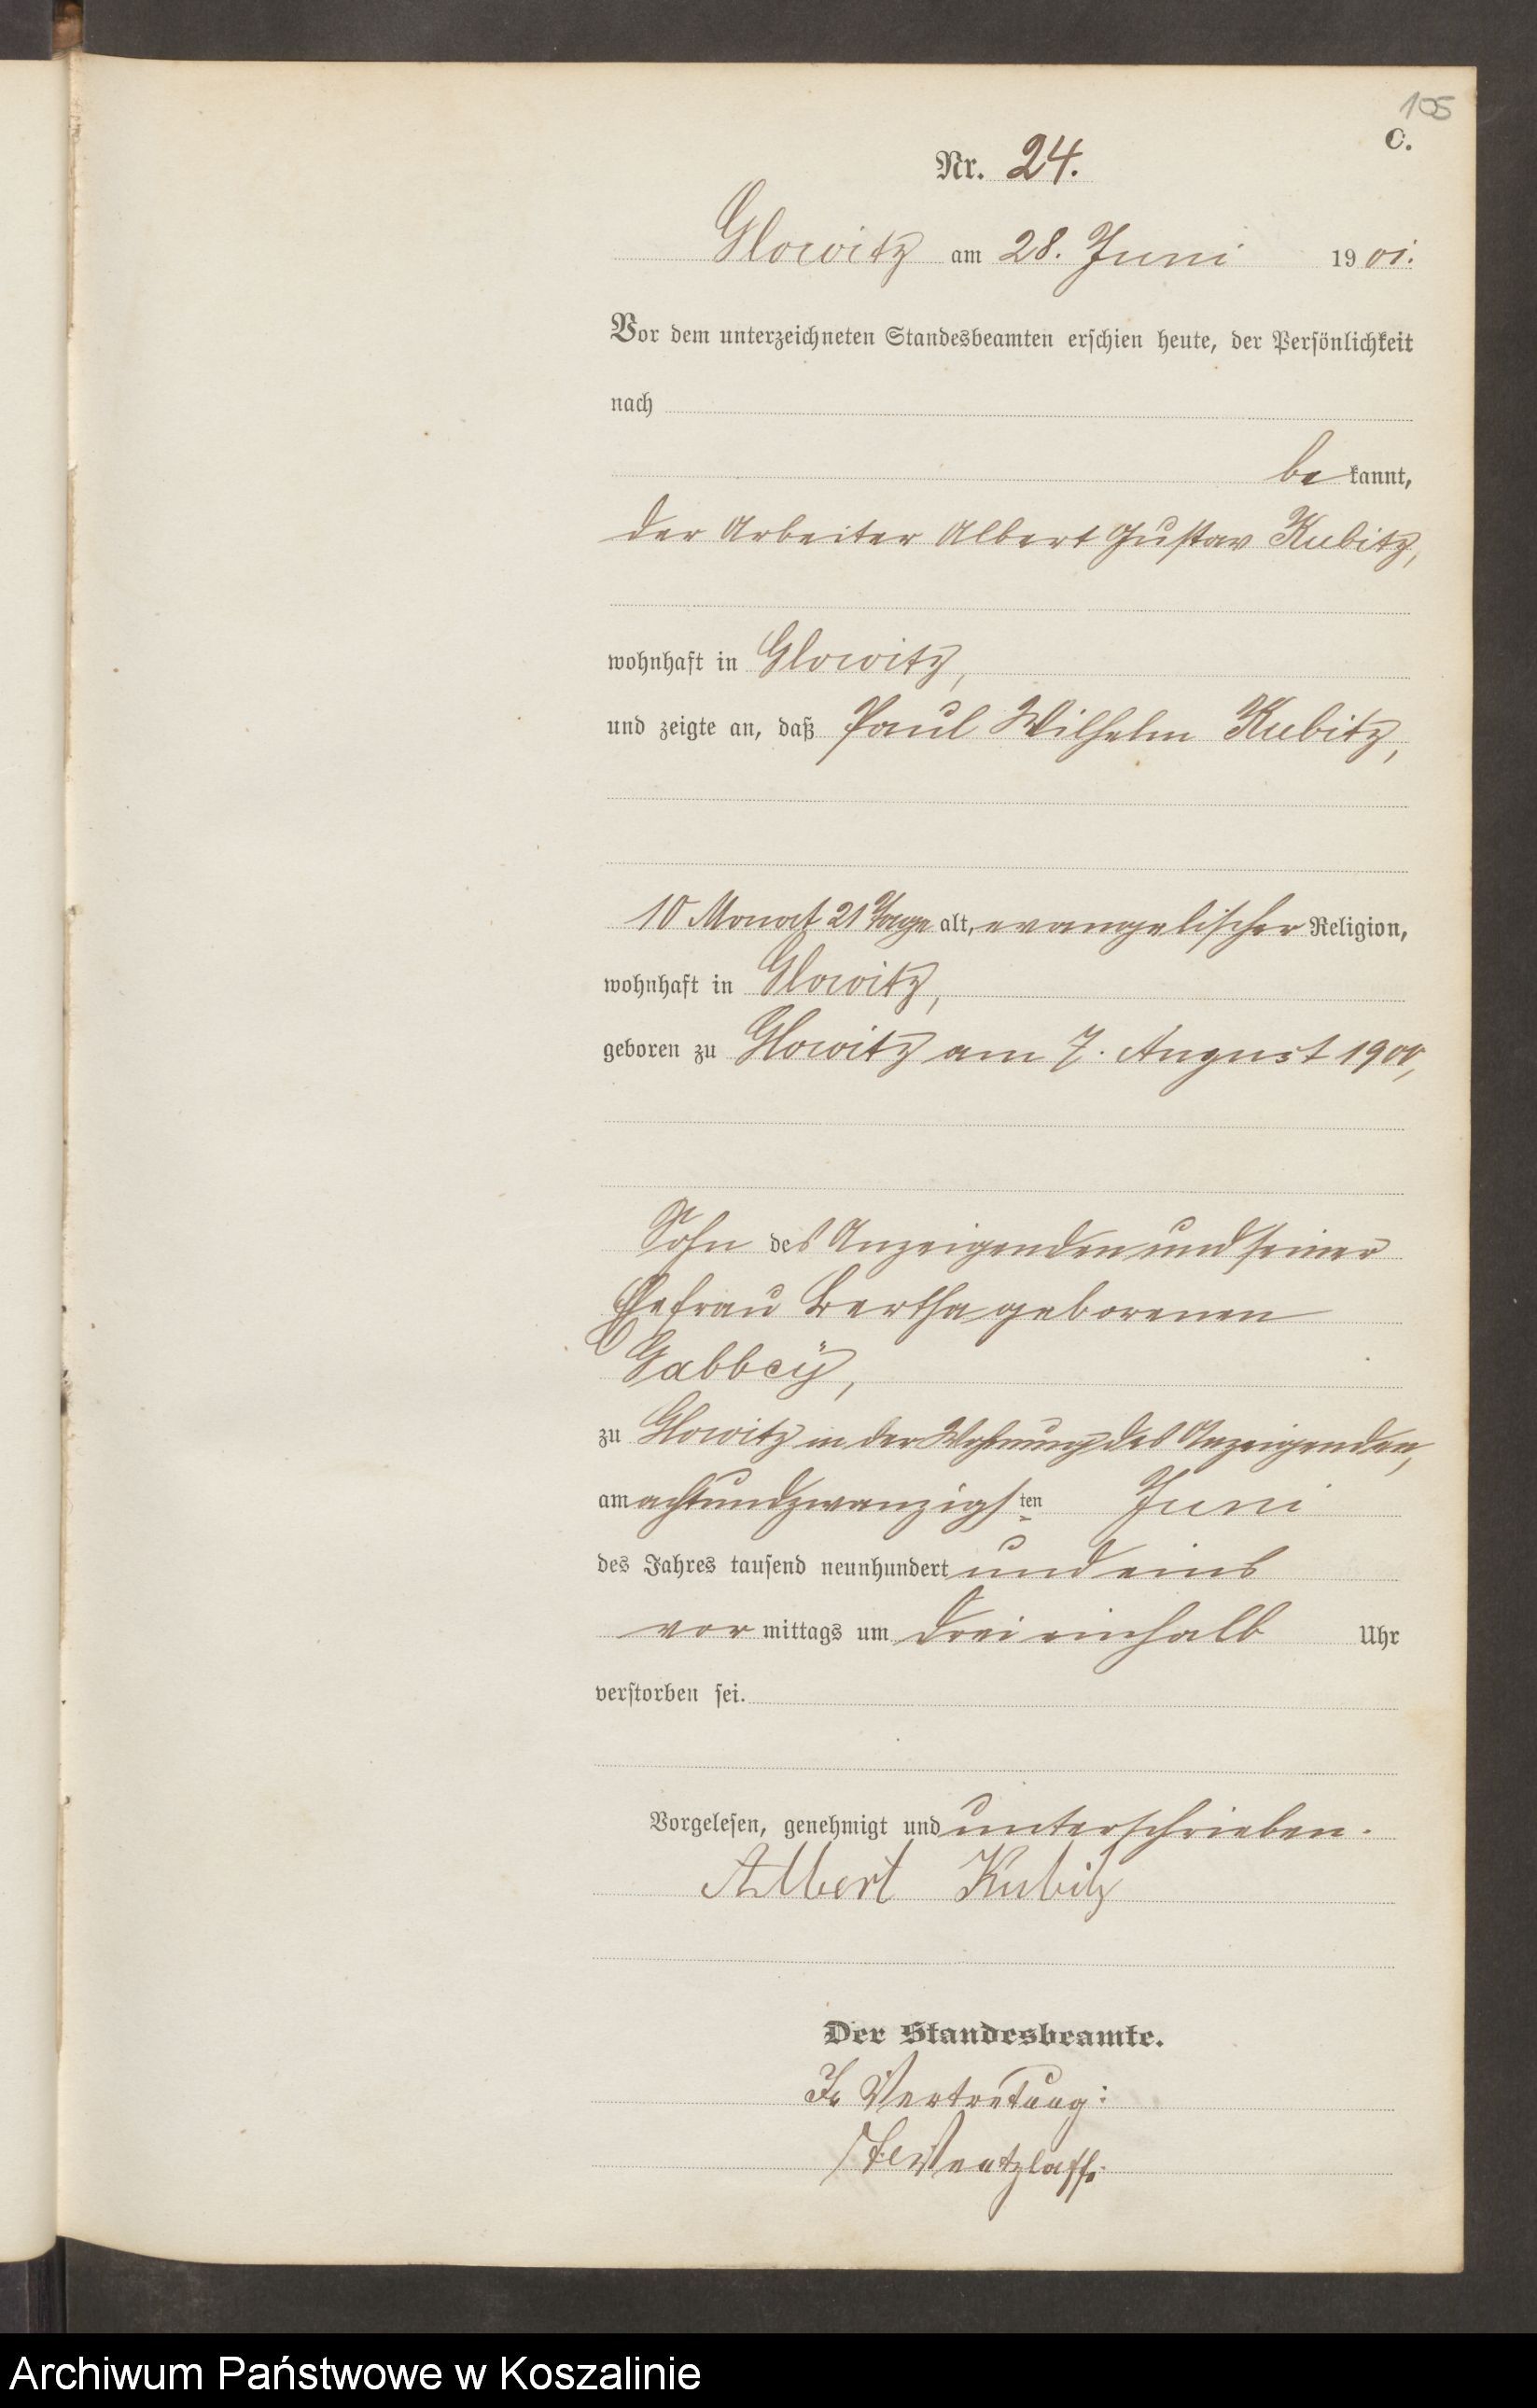 105
C.
Nr. 24.
Glowitz am 28. Juni 1901.
Vor dem unterzeichneten Standesbeamten erschien heute, der Persönlichkeit
nach
bekannt,
der Arbeiter Albert Gustav Kubitz,
wohnhaft in Glowitz,
und zeigte an, daß Paul Wilhelm Kubitz,
10 Monat 21 Tage alt, evangelischer Religion,
wohnhaft in Glowitz,
geboren zu Glowitz am 7. August 1900,
Sohn des Anzeigenden und seiner
Ehefrau Bertha geborenen
Gabbey,
zu Glowitz in der Wohnung des Anzeigenden,
am achtundzwanzigsten Juni
des Jahres tausend neunhundert und eins
vormittags um drei einhalb Uhr
verstorben sei.
Vorgelesen, genehmigt und unterschrieben.
Albert Kubitz
Der Standesbeamte.
In Vertretung:
Wentzlaff.
Archiwum Państwowe w Koszalinie